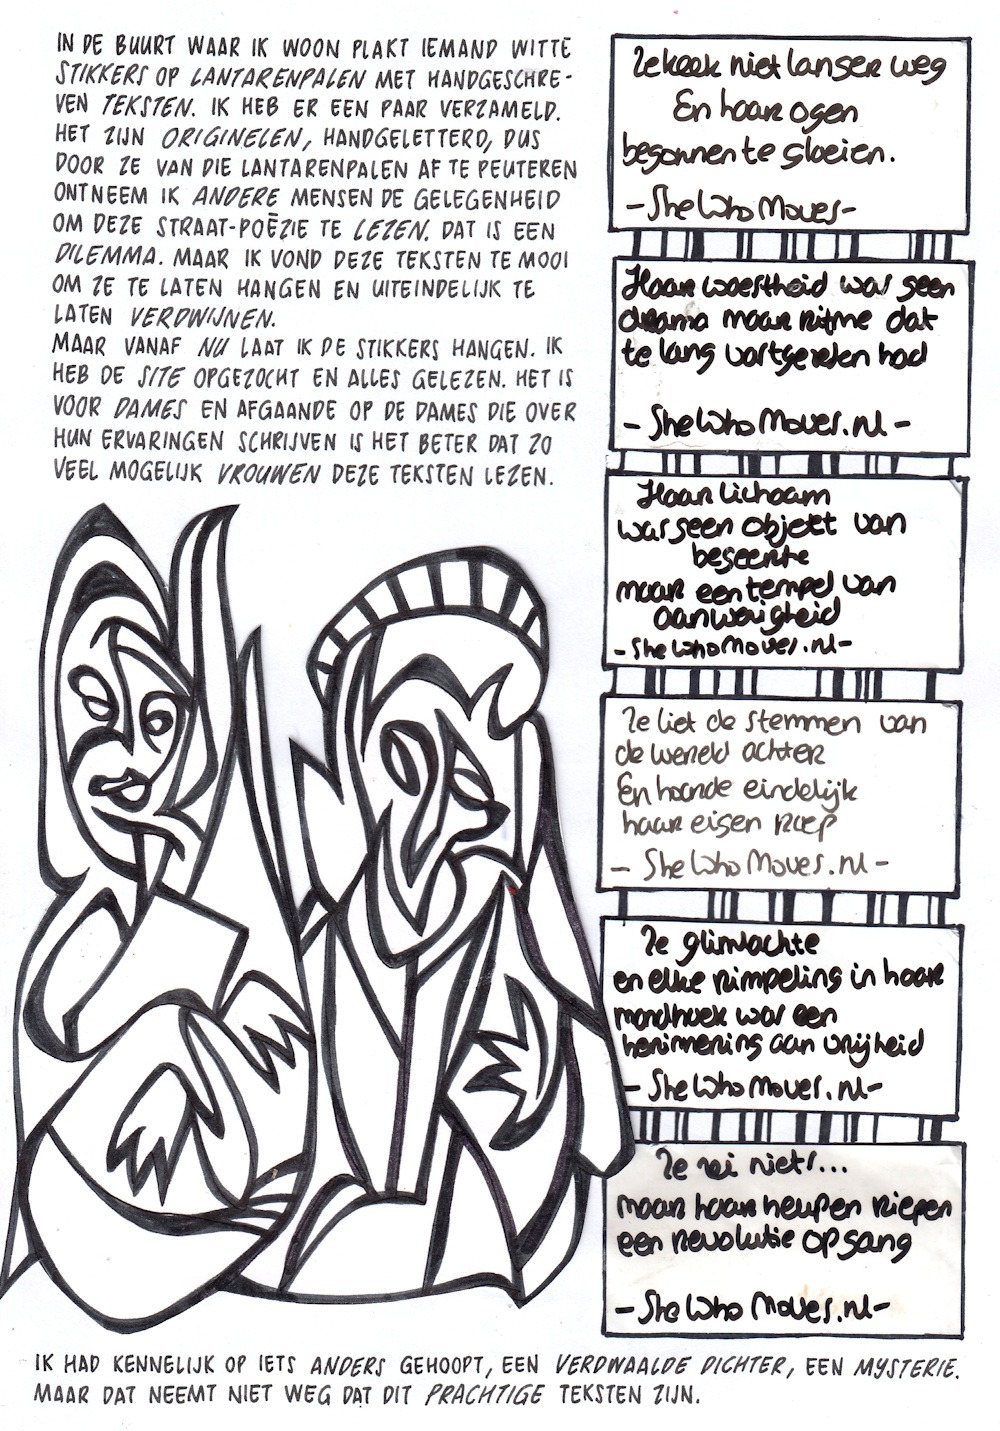 IN DE BUURT WAAR IK WOON PLAKT IEMAND WITTE
STIKKERS OP LANTARENPALEN MET HANDGESCHRE-
VEN TEKSTEN. IK HEB ER EEN PAAR VERZAMELD.
HET ZIJN ORIGINELEN, HANDGELETTERD, DUS
DOOR ZE VAN DIE LANTARENPALEN AF TE PEUTEREN
ONTNEEM IK ANDERE MENSEN DE GELEGENHEID
OM DEZE STRAAT-POËZIE TE LEZEN. DAT IS EEN
DILEMMA. MAAR IK VOND DEZE TEKSTEN TE MOOI
OM ZE TE LATEN HANGEN EN UITEINDELIJK TE
LATEN VERDWIJNEN.
MAAR VANAF NU LAAT IK DE STIKKERS HANGEN. IK
HEB DE SITE OPGEZOCHT EN ALLES GELEZEN. HET IS
VOOR DAMES EN AFGAANDE OP DE DAMES DIE OVER
HUN ERVARINGEN SCHRIJVEN IS HET BETER DAT ZO
VEEL MOGELIJK VROUWEN DEZE TEKSTEN LEZEN.
Ze keek niet langer weg
En haar ogen
begonnen te gloeien.
-SheWhoMoves-
Haar woestheid was geen
drama maar ritme dat
te lang vastgezeten had
-SheWhoMoves.nl-
Haar lichaam
was geen objekt van
begeerte
maar een tempel van
aanwezigheid
-SheWhoMoves.nl-
Ze liet de stemmen van
de wereld achter
En hoorde eindelijk
haar eigen roep
- SheWhoMoves.nl-
Ze glimlachte
en elke rimpeling in haar
mondhoek was een
herinnering aan vrijheid
- SheWhoMoves.nl-
Ze zei niets...
maar haar heupen riepen
een revolutie op gang
-SheWhoMoves.nl-
IK HAD KENNELIJK OP IETS ANDERS GEHOOPT, EEN VERDWAALDE DICHTER, EEN MYSTERIE.
MAAR DAT NEEMT NIET WEG DAT DIT PRACHTIGE TEKSTEN ZIJN.